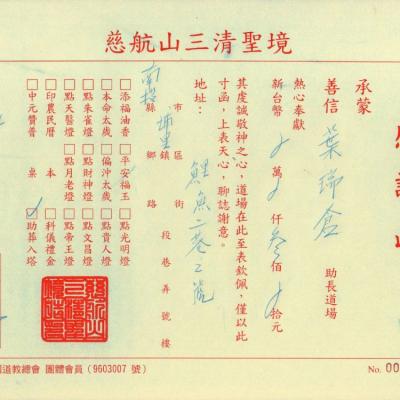 慈航山三清聖境
承蒙
善信 葉瑞倉 助長道場
熱心奉獻
新台幣 萬 仟 叁 佰 拾元
其虔誠敬神之心，道場在此至表欽佩，僅以此
寸函，上表天心，聊誌謝意。
地址：
南投 縣市 埔里 鄉鎮區 鯉魚 路街 段 二巷 弄 2號 樓
□添福油香 □平安福王 □點光明燈
□本命太歲 □偏沖太歲 □點貴人燈
□點朱雀燈 □點財神燈 □點文昌燈
□點天醫燈 □點月老燈 □點帝王燈
□印農民曆 本 □科儀禮金
□中元贊普 桌 □助葬入塔
道教總會 團體會員（9603007 號）
No. 00